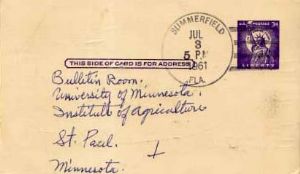 SUMMERFIELD
JUL
3
5 PM
1961
FLA.
U.S. POSTAGE 3¢
LIBERTY
THIS SIDE OF CARD IS FOR ADDRESS
Bulletin Room.
University of Minnesota.
Institute of Agriculture
St. Paul.
Minnesota.